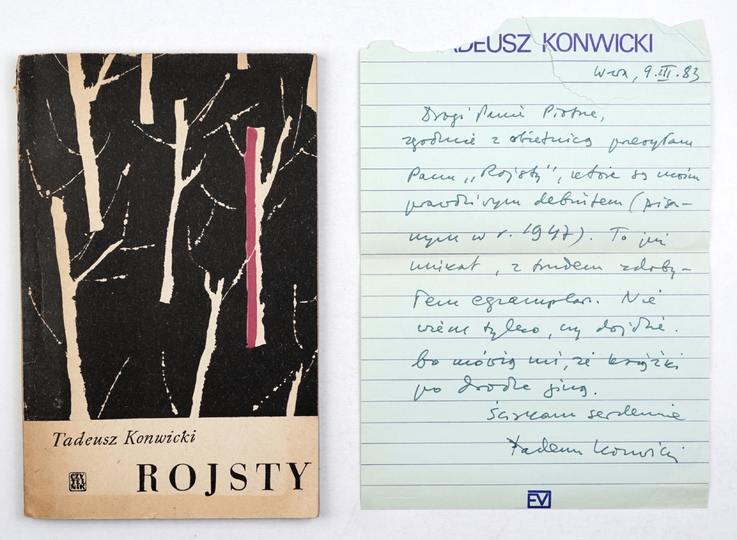 Tadeusz Konwicki
ROJSTY
CZYTELNIK
ADEUSZ KONWICKI
W-wa, 9.III.83
Drogi Panie Piotrze,
zgodnie z obietnicą przesyłam
Panu „Rojsty”, które są moim
prawdziwym debiutem (pisa-
nym w r. 1947). To już
unikat, z trudem zdoby-
łem egzemplarz. Nie
wiem tylko, czy dojdzie.
bo mówią mi, że książki
po drodze giną.
Ściskam serdecznie
Tadeusz Konwicki
EV